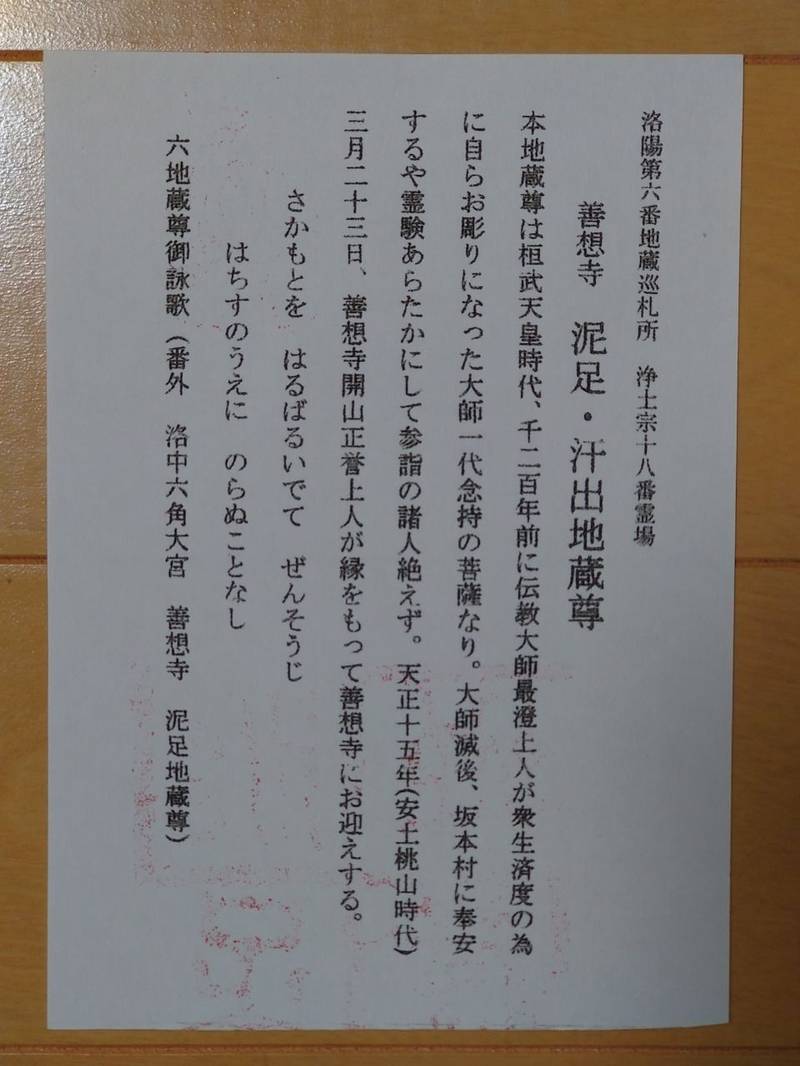 洛陽第六番地蔵巡札所　浄土宗十八番霊場
善想寺　泥足・汗出地蔵尊
本地蔵尊は桓武天皇時代、千二百年前に伝教大師最澄上人が衆生済度の為
に自らお彫りになった大師一代念持の菩薩なり。大師滅後、坂本村に奉安
するや霊験あらたかにして参詣の諸人絶えず。天正十五年(安土桃山時代)
三月二十三日、善想寺開山正誉上人が縁をもって善想寺にお迎えする。
さかもとを　はるばるいでて　ぜんそうじ
はちすのうえに　のらぬことなし
六地蔵尊御詠歌（番外　洛中六角大宮　善想寺　泥足地蔵尊）